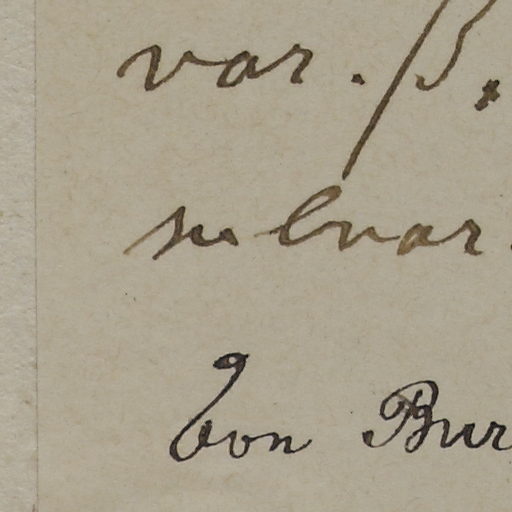 var. β.
subvar.
Von Bur